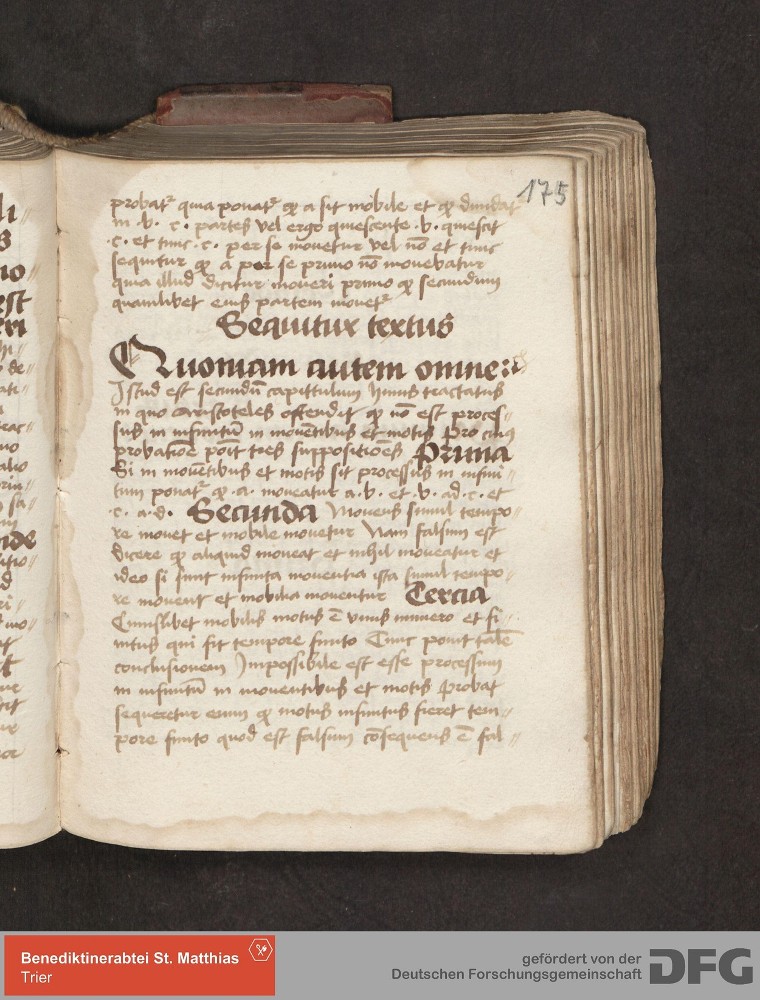 175
probatr quia ponatr qp a sit mobile et qp diuidat
in .b. c. partes vel ergo quiescente .b. quiescit
.c. et tunc .c. per se mouetur vel nō et tunc
sequitur qp a per se primo nō mouebatur
quia illud dicitur moueri primo qp secundum
quamlibet eius partem mouetr
Sequitur textus
Quoniam autem omne
Istud est secundū capittulum huius tractatus
in quo Aristoteles ostendit qp nō est proces=
sus in infinitum in mouētibus et motis Pro cuius
probatiōe poīt tres suppositiōes Prima
Si in mouētibus et motis sit processus in infini=
tum ponatr qp .a. moueatur a .b. et .b. ad .c. et
.c. a .d. Secunda Mouens simul tempo=
re mouet et mobile mouetur Nam falsum est
dicere qp aliquid moueat et nihil moueatur et
ideo si sunt infinita mouentia ista simul tempo=
re mouent et mobilia mouentur Tercia
Cuiuslibet mobilis motus ē vnus numero et fi=
nitus qui fit tempore finito Tunc ponit talē
conclusionem Impossibile est esse processum
in infinitū in mouentibus et motis Probat
sequeretur enim qp motus infinitus fieret tem=
pore finito quod est falsum cōsequens ē fal=
Benediktinerabtei St. Matthias
Trier
gefördert von der
Deutschen Forschungsgemeinschaft
DFG